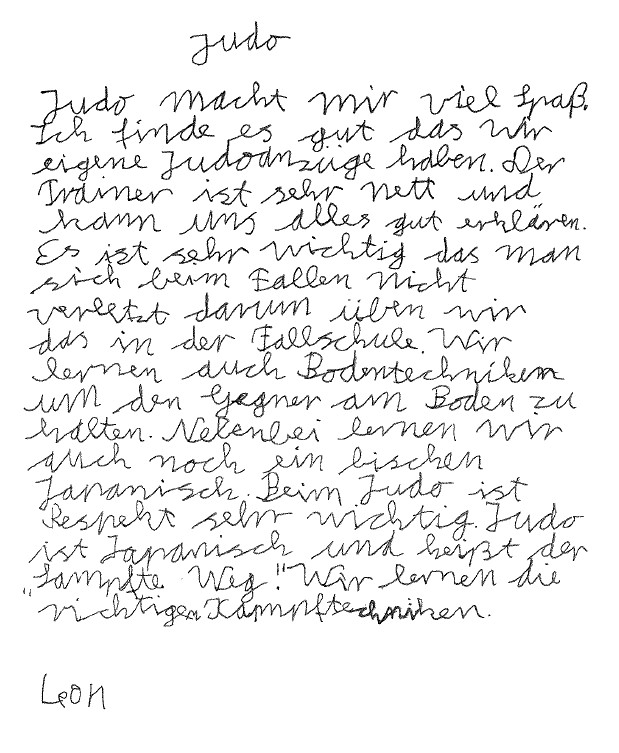 Judo
Judo macht mir viel Spaß.
Ich finde es gut das wir
eigene Judoanzüge haben. Der
Trainer ist sehr nett und
kann uns alles gut erklären.
Es ist sehr wichtig das man
sich beim Fallen nicht
verletzt darum üben wir
das in der Fallschule. Wir
lernen auch Bodentechniken
um den Gegner am Boden zu
halten. Nebenbei lernen wir
auch noch ein bischen
Japanisch. Beim Judo ist
Respekt sehr wichtig. Judo
ist Japanisch und heißt der
„Sampfte Weg!" Wir lernen die
richtigen Kampftechniken.
Leon